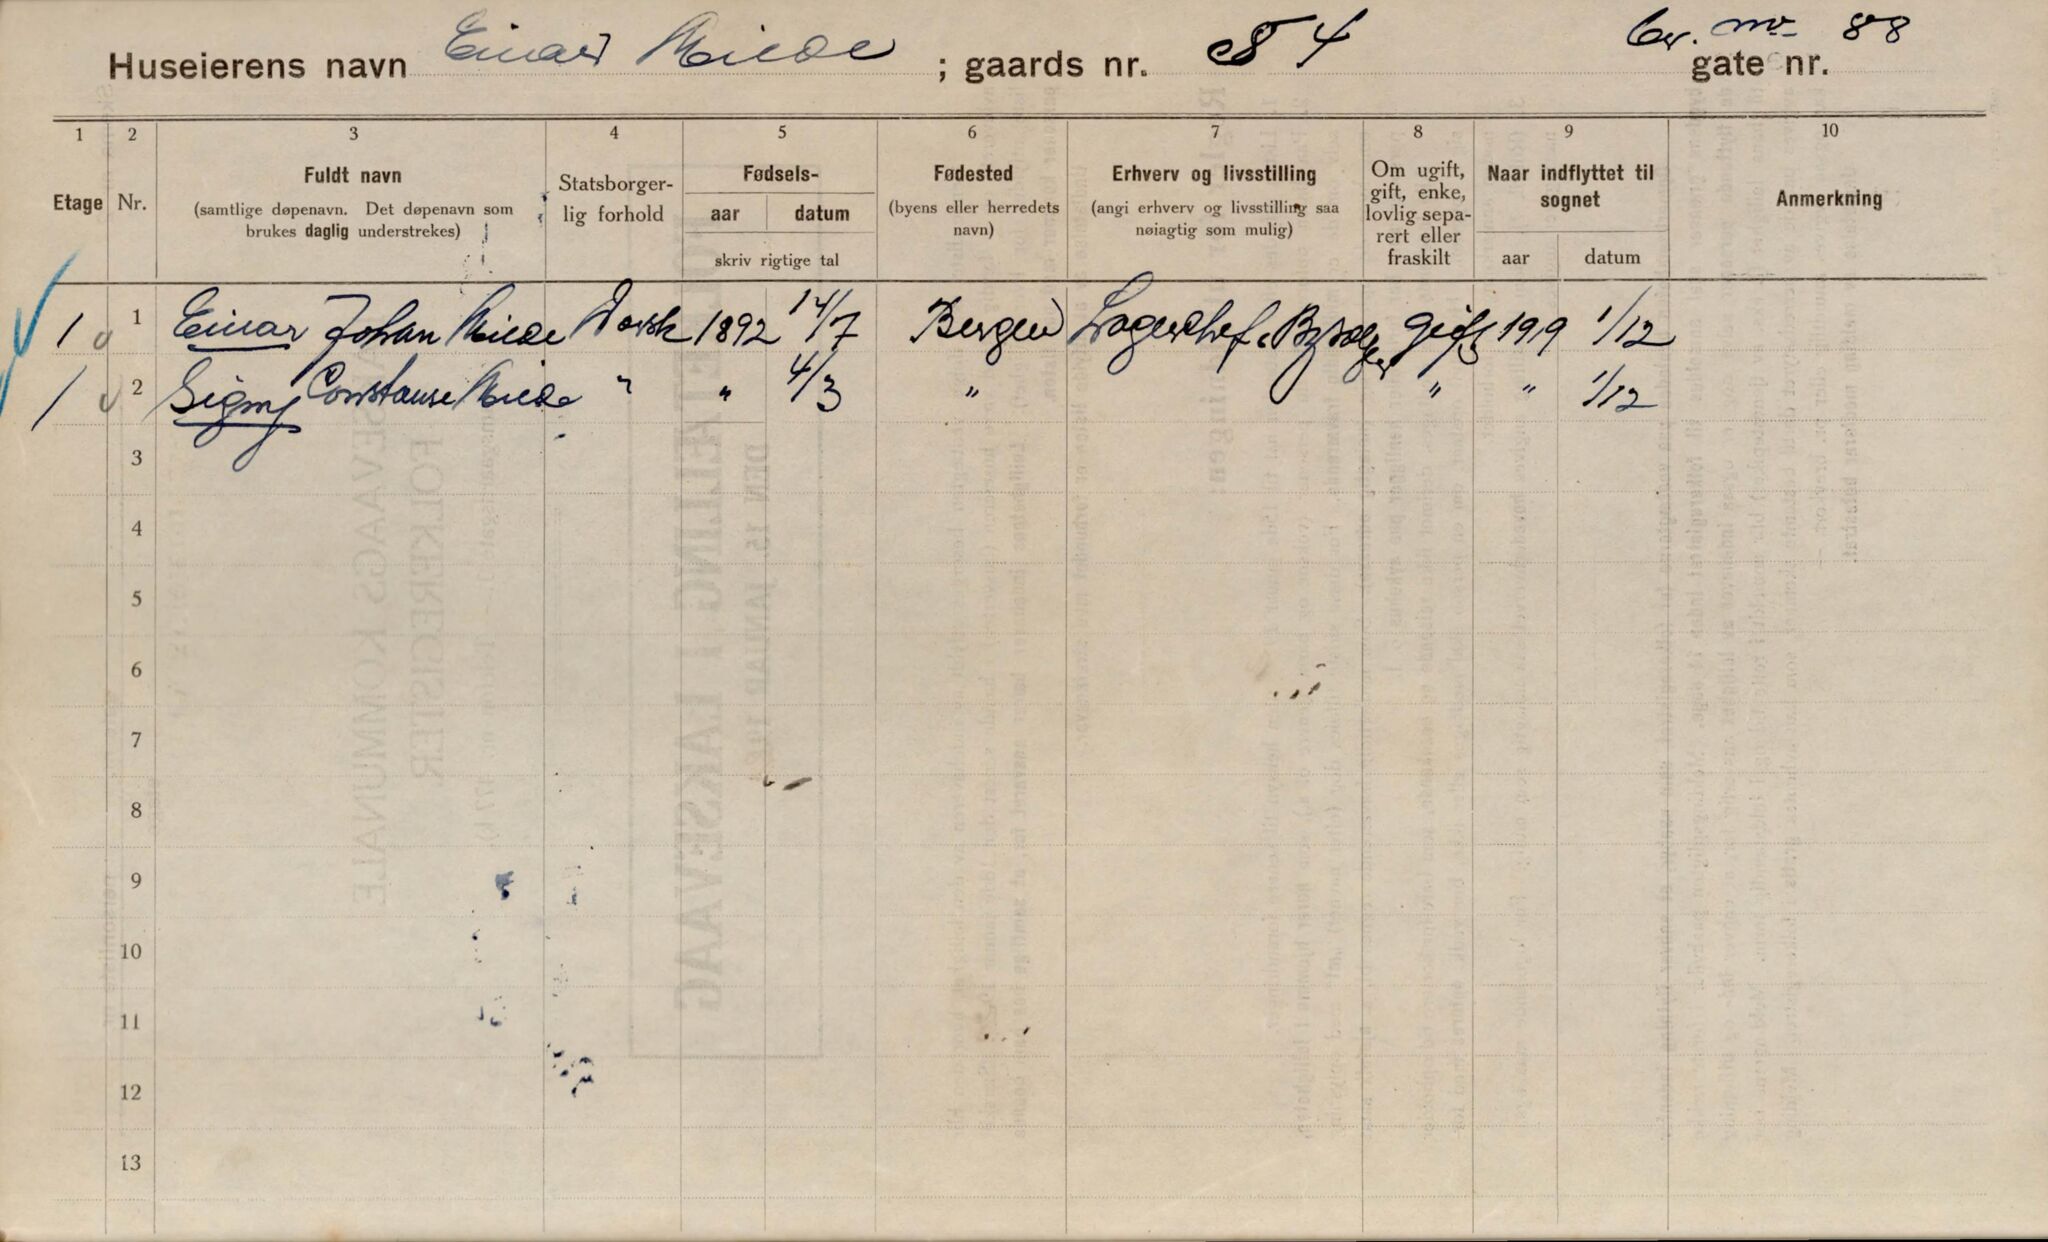 Huseierens navn Einar Milde ; gaards nr. 54 gate nr. br. nr 88
1 2 3 4 5 6 7 8 9 10
Etage Nr. Fuldt navn (samtlige døpenavn. Det døpenavn som brukes daglig understrekes) Statsborger-lig forhold Fødsels- aar datum skriv rigtige tal Fødested (byens eller herredets navn) Erhverv og livsstilling (angi erhverv og livsstilling saa nøiagtig som mulig) Om ugift, gift, enke, lovlig sepa-rert eller fraskilt Naar indflyttet til sognet aar datum Anmerkning
1 1 Einar Johan Milde Norsk 1892 14/7 Bergen Lagerchef gift 1919 1/12
1 2 Signy Constanse Milde " " 4/3 " " " 1/12
3
4
5
6
7
8
9
10
11
12
13